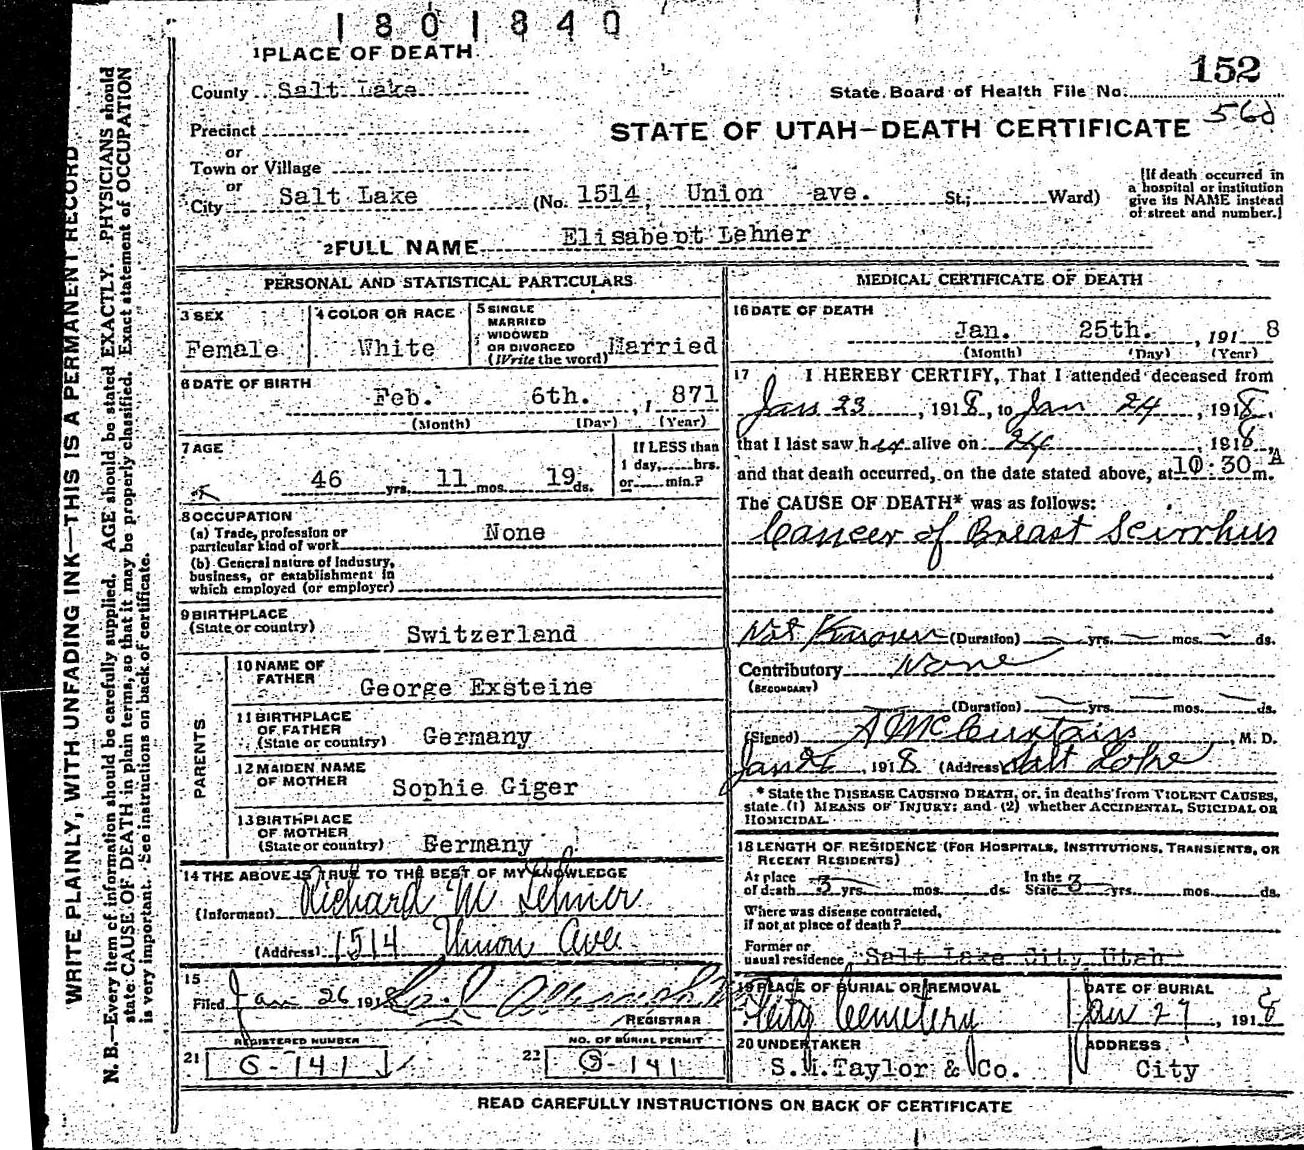 1801840
1 PLACE OF DEATH
152
County Salt Lake
State Board of Health File No.
560
Precinct
STATE OF UTAH—DEATH CERTIFICATE
or
Town or Village
or
City Salt Lake (No. 1514, Union ave. St.; Ward)
[If death occurred in
a hospital or institution
give its NAME instead
of street and number.]
2 FULL NAME Elisabept Lehner
PERSONAL AND STATISTICAL PARTICULARS
3 SEX
Female
4 COLOR OR RACE
White
5 SINGLE
MARRIED
WIDOWED
OR DIVORCED
(Write the word) Married
6 DATE OF BIRTH
Feb. 6th. , 1 871
(Month) (Day) (Year)
7 AGE
46 yrs. 11 mos. 19 ds.
If LESS than
1 day, hrs.
or min.?
8 OCCUPATION
(a) Trade, profession or
particular kind of work None
(b) General nature of Industry,
business, or establishment in
which employed (or employer)
9 BIRTHPLACE
(State or country) Switzerland
PARENTS
10 NAME OF
FATHER
George Exsteine
11 BIRTHPLACE
OF FATHER
(State or country) Germany
12 MAIDEN NAME
OF MOTHER
Sophie Giger
13 BIRTHPLACE
OF MOTHER
(State or country) Germany
14 THE ABOVE IS TRUE TO THE BEST OF MY KNOWLEDGE
(Informant) Richard M Lehner
(Address) 1514 Union Ave
15
Filed Jan 26 191
REGISTRAR
REGISTERED NUMBER
21 G-141
NO. OF BURIAL PERMIT
22 G-141
MEDICAL CERTIFICATE OF DEATH
16 DATE OF DEATH
Jan. 25th. , 191 8
(Month) (Day) (Year)
17 I HEREBY CERTIFY, That I attended deceased from
Jan 23 , 1918, to Jan 24 , 1918,
that I last saw her alive on 24 1918,
and that death occurred, on the date stated above, at 10:30 A m.
The CAUSE OF DEATH* was as follows:
Cancer of Breast Scirrhus
Not Known (Duration) — yrs. — mos. — ds.
Contributory None
(SECONDARY)
(Duration) — yrs. — mos. — ds.
(Signed) , M. D.
Jan 26 , 1918 (Address) Salt Lake
* State the DISEASE CAUSING DEATH, or, in deaths from VIOLENT CAUSES,
state (1) MEANS OF INJURY; and (2) whether ACCIDENTAL, SUICIDAL OR
HOMICIDAL.
18 LENGTH OF RESIDENCE (FOR HOSPITALS, INSTITUTIONS, TRANSIENTS, OR
RECENT RESIDENTS)
At place
of death 3 yrs. mos. ds.
In the
State 3 yrs. mos. ds.
Where was disease contracted,
if not at place of death?
Former or
usual residence Salt Lake City Utah
19 PLACE OF BURIAL OR REMOVAL
City Cemetery
DATE OF BURIAL
Jan 27 , 1918
20 UNDERTAKER
S.M.Taylor & Co.
ADDRESS
City
READ CAREFULLY INSTRUCTIONS ON BACK OF CERTIFICATE
WRITE PLAINLY, WITH UNFADING INK—THIS IS A PERMANENT RECORD
N. B.—Every item of information should be carefully supplied. AGE should be stated EXACTLY. PHYSICIANS should
state CAUSE OF DEATH in plain terms, so that it may be properly classified. Exact statement of OCCUPATION
is very important. See instructions on back of certificate.